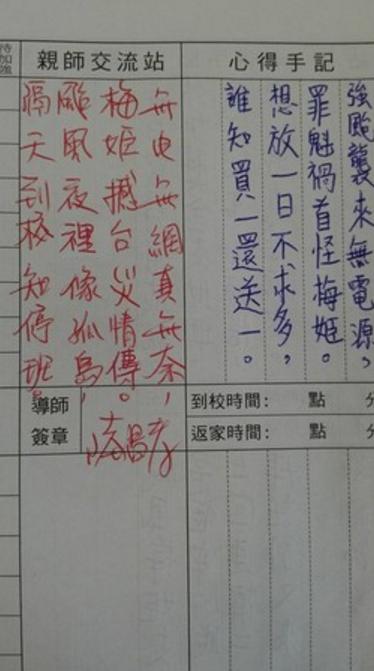 待加強
親師交流站
心得手記
強颱襲來無電源，
罪魁禍首怪梅姬。
想放一日不求多，
誰知買一還送一。
無电無網真無奈，
梅姬撼台災情傳。
颱風夜裡像孤島，
隔天到校知停班。
導師
簽章
到校時間： 點 分
返家時間： 點 分